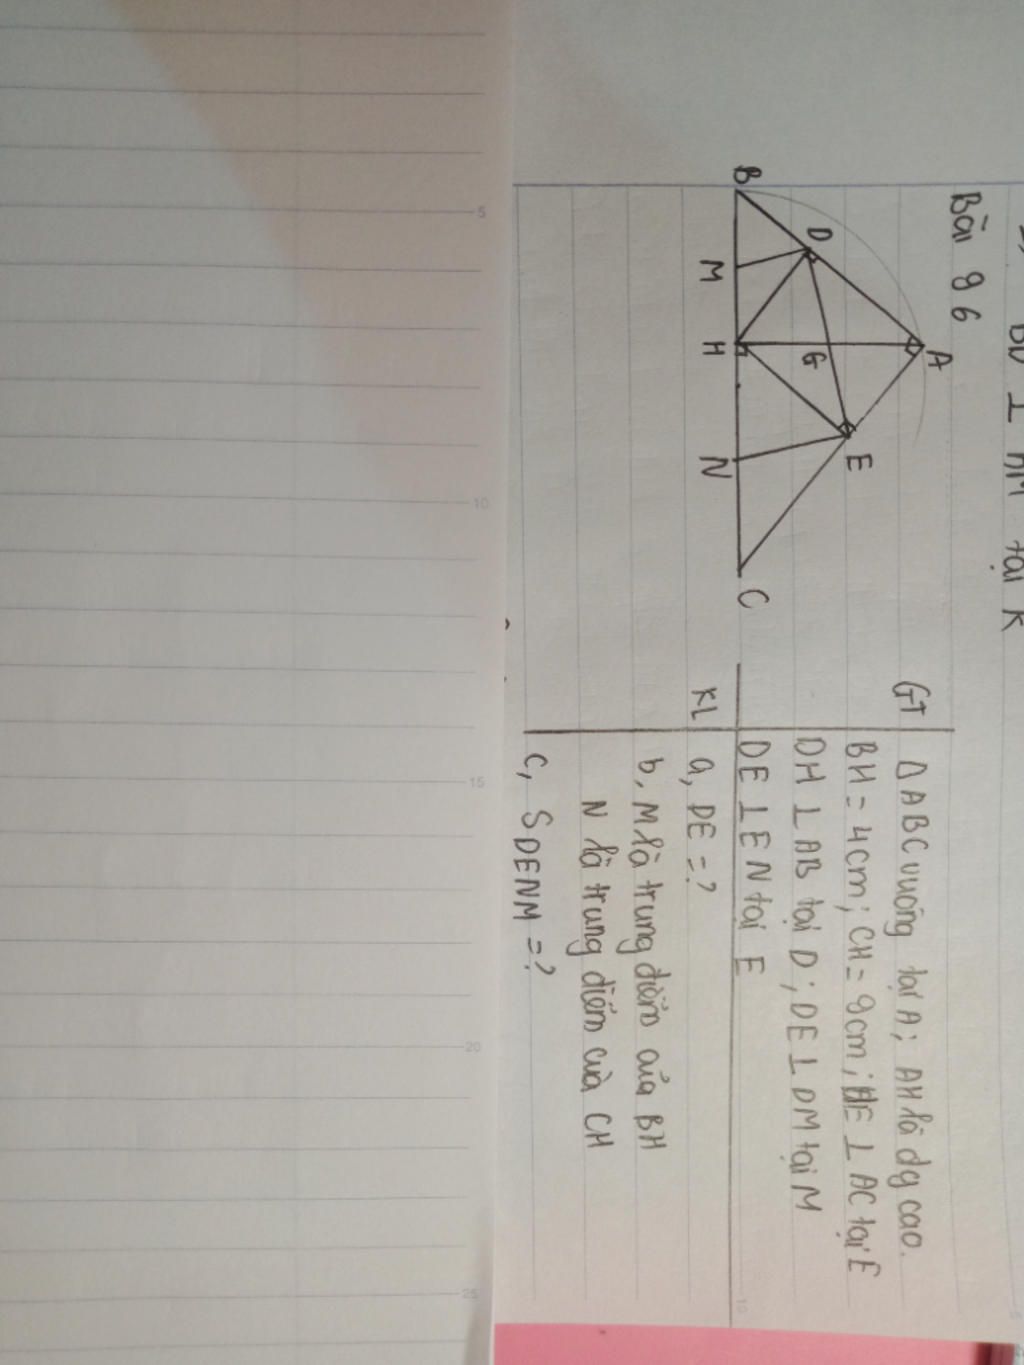 BD ⊥ AM tại K
Bài 96
A
D
E
G
B
M
H
N
C
GT
ΔABC vuông tại A; AH là đg cao.
BH = 4cm; CH = 9cm; HE ⊥ AC tại E
DH ⊥ AB tại D; DE ⊥ DM tại M
DE ⊥ EN tại E
KL
a, DE = ?
b, M là trung điểm của BH
N là trung điểm của CH
c, SDENM = ?
5
10
15
20
25